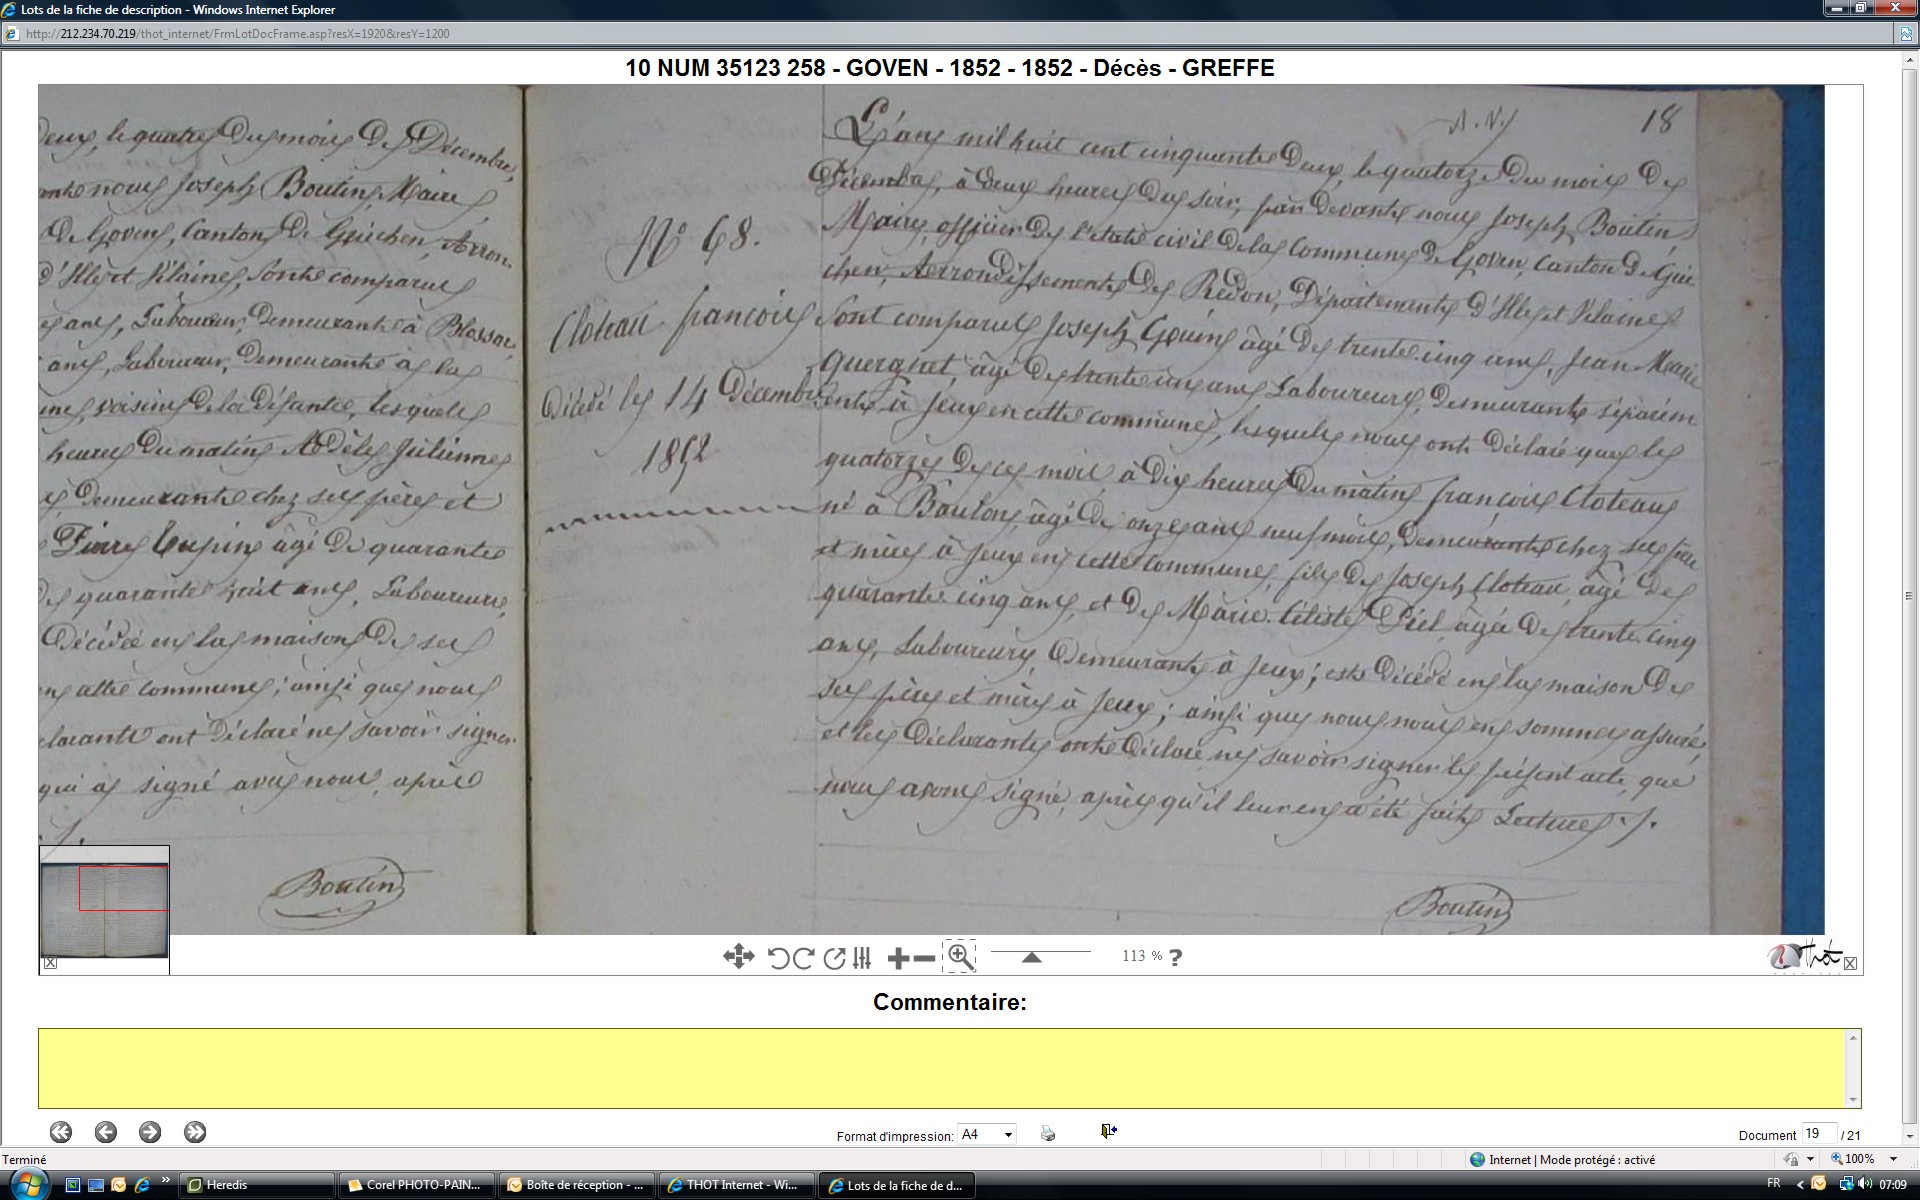 Lots de la fiche de description - Windows Internet Explorer
http://212.234.70.219/thot_internet/FrmLotDocFrame.asp?resX=1920&resY=1200
10 NUM 35123 258 - GOVEN - 1852 - 1852 - Décès - GREFFE
deux, le quatre du mois de Décembre,
nous Joseph Boutin, Maire,
de Goven, Canton de Guichen, Arron-
d'Ille et Vilaine, sont comparus
ans, Laboureur, demeurant à Blossac,
ans, Laboureur, demeurant à la
voisins de la défunte, lesquels
heures du matin Adèle Julienne
demeurante chez ses père et
Pierre âgé de quarante
de quarante huit ans, Laboureurs,
décédée en la maison de ses
commune; ainsi que nous
ont déclaré ne savoir signer
qui a signé avec nous, après
Boutin
N° 68.
Cloteau françois
Décédé le 14 Décembre
1852
18
L'an mil huit cent cinquante deux, le quatorze du mois de
Décembre, à deux heures du soir, par devant nous Joseph Boutin
Maire, officier de l'état civil de la Commune de Goven, Canton de Gui-
chen, Arrondissement de Redon, Département d'Ille et Vilaine
sont comparus Joseph Gouin âgé de trente cinq ans, Jean Marie
âgé de trente ans Laboureurs, demeurants séparém-
ent à Jeux en cette commune, lesquels nous ont déclaré que le
quatorze de ce mois à dix heures du matin françois Cloteau
né à Baulon, âgé de onze ans neuf mois, demeurant chez ses père
et mère à Jeux en cette commune, fils de Joseph Cloteau, âgé de
quarante cinq ans, et de Marie Céleste Piel, âgée de trente cinq
ans, Laboureurs, demeurants à Jeux; est décédé en la maison de
ses père et mère à Jeux; ainsi que nous nous en sommes assuré,
et les déclarants ont déclaré ne savoir signer le présent acte, que
nous avons signé, après qu'il leur en a été fait Lecture ./.
Boutin
113 % ?
Thot
Commentaire:
Format d'impression: A4
Document 19 / 21
Terminé
Internet | Mode protégé : activé
100%
Heredis
Corel PHOTO-PAIN...
Boîte de réception - ...
THOT Internet - Wi...
Lots de la fiche de d...
FR
07:09